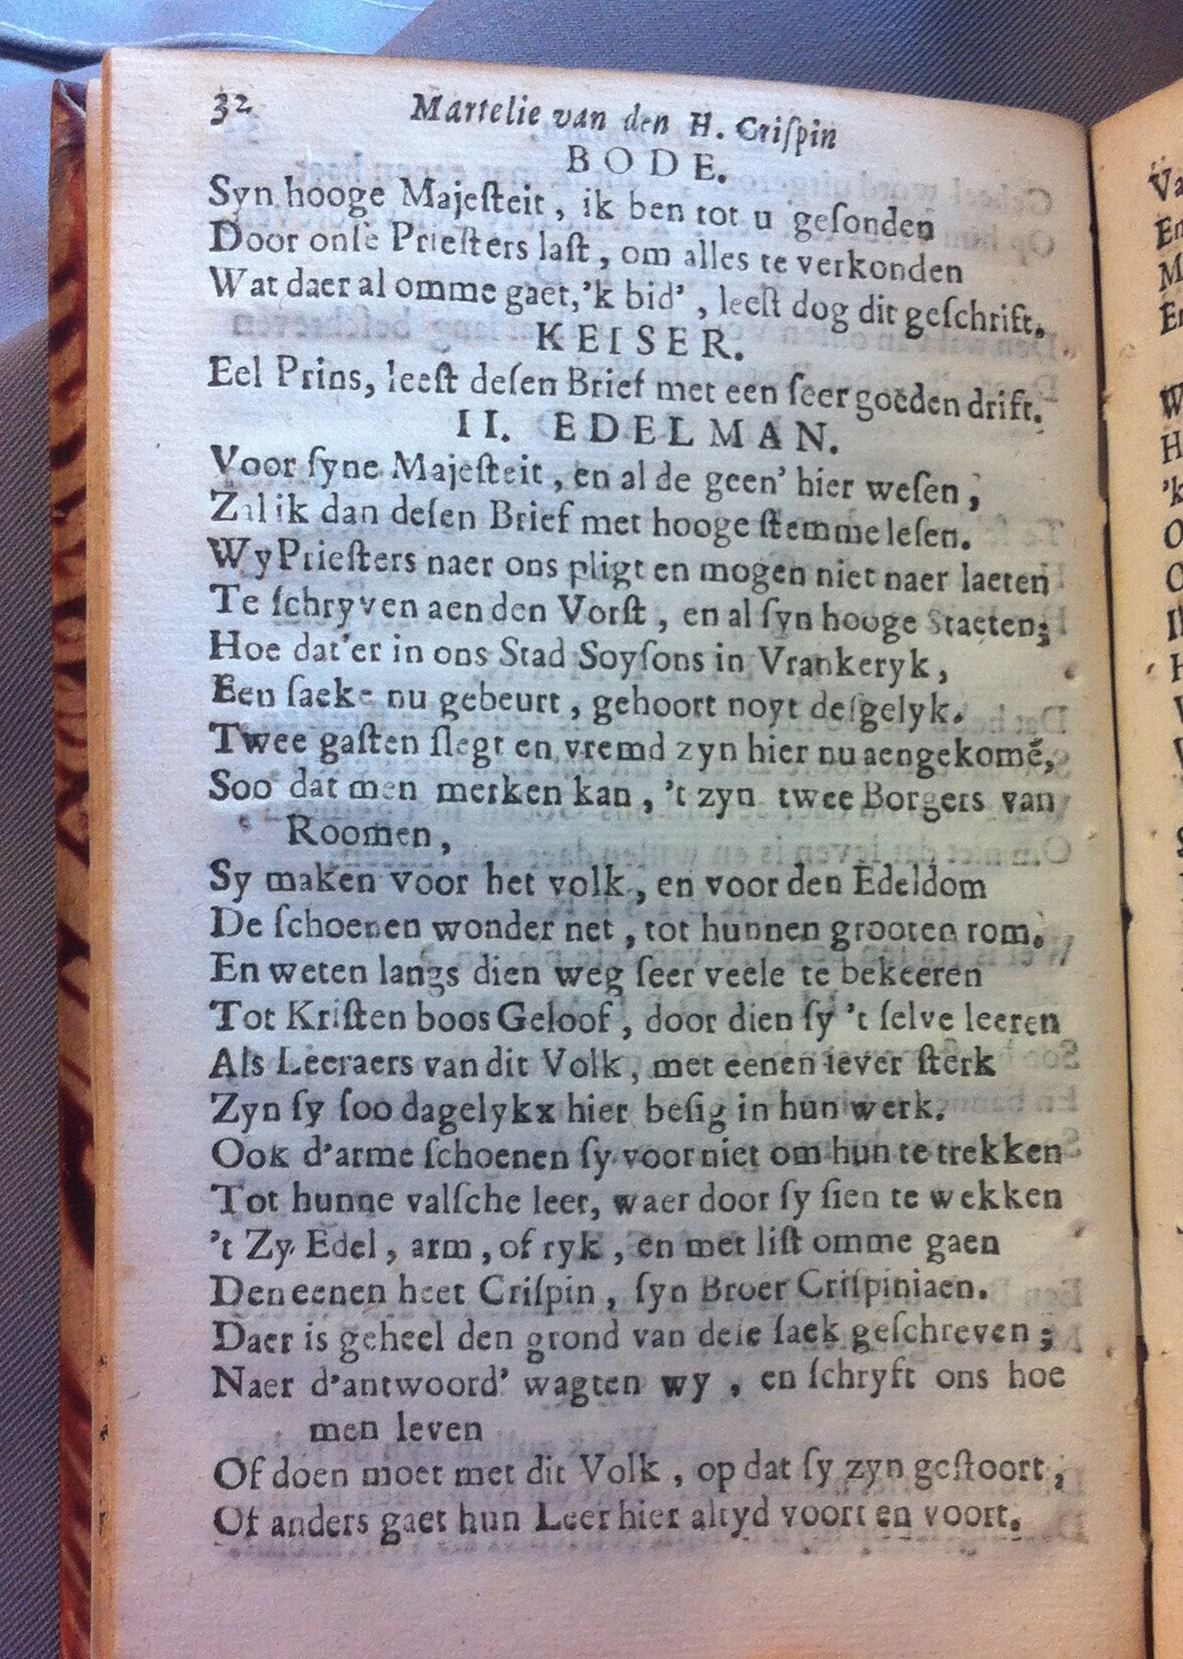 32 Martelie van den H. Criſpin
BODE.
Syn hooge Majeſteit, ik ben tot u geſonden
Door onſe Prieſters laſt, om alles te verkonden
Wat daer al omme gaet, 'k bid', leeſt dog dit geſchrift.
KEISER.
Eel Prins, leeſt deſen Brief met een ſeer goeden drift.
II. EDELMAN.
Voor ſyne Majeſteit, en al de geen' hier weſen,
Zal ik dan deſen Brief met hooge ſtemme leſen.
Wy Prieſters naer ons pligt en mogen niet naer laeten
Te ſchryven aen den Vorſt, en al ſyn hooge Staeten;
Hoe dat'er in ons Stad Soyſons in Vrankeryk,
Een ſaeke nu gebeurt, gehoort noyt deſgelyk.
Twee gaſten ſlegt en vremd zyn hier nu aengekomẽ,
Soo dat men merken kan, 't zyn twee Borgers van
Roomen,
Sy maken voor het volk, en voor den Edeldom
De ſchoenen wonder net, tot hunnen grooten rom.
En weten langs dien weg ſeer veele te bekeeren
Tot Kriſten boos Geloof, door dien ſy 't ſelve leeren
Als Leeraers van dit Volk, met eenen iever ſterk
Zyn ſy ſoo dagelykx hier beſig in hun werk.
Ook d'arme ſchoenen ſy voor niet om hun te trekken
Tot hunne valſche leer, waer door ſy ſien te wekken
't Zy Edel, arm, of ryk, en met liſt omme gaen
Den eenen heet Criſpin, ſyn Broer Criſpiniaen.
Daer is geheel den grond van deſe ſaek geſchreven;
Naer d'antwoord' wagten wy, en ſchryft ons hoe
men leven
Of doen moet met dit Volk, op dat ſy zyn geſtoort,
Of anders gaet hun Leer hier altyd voort en voort.